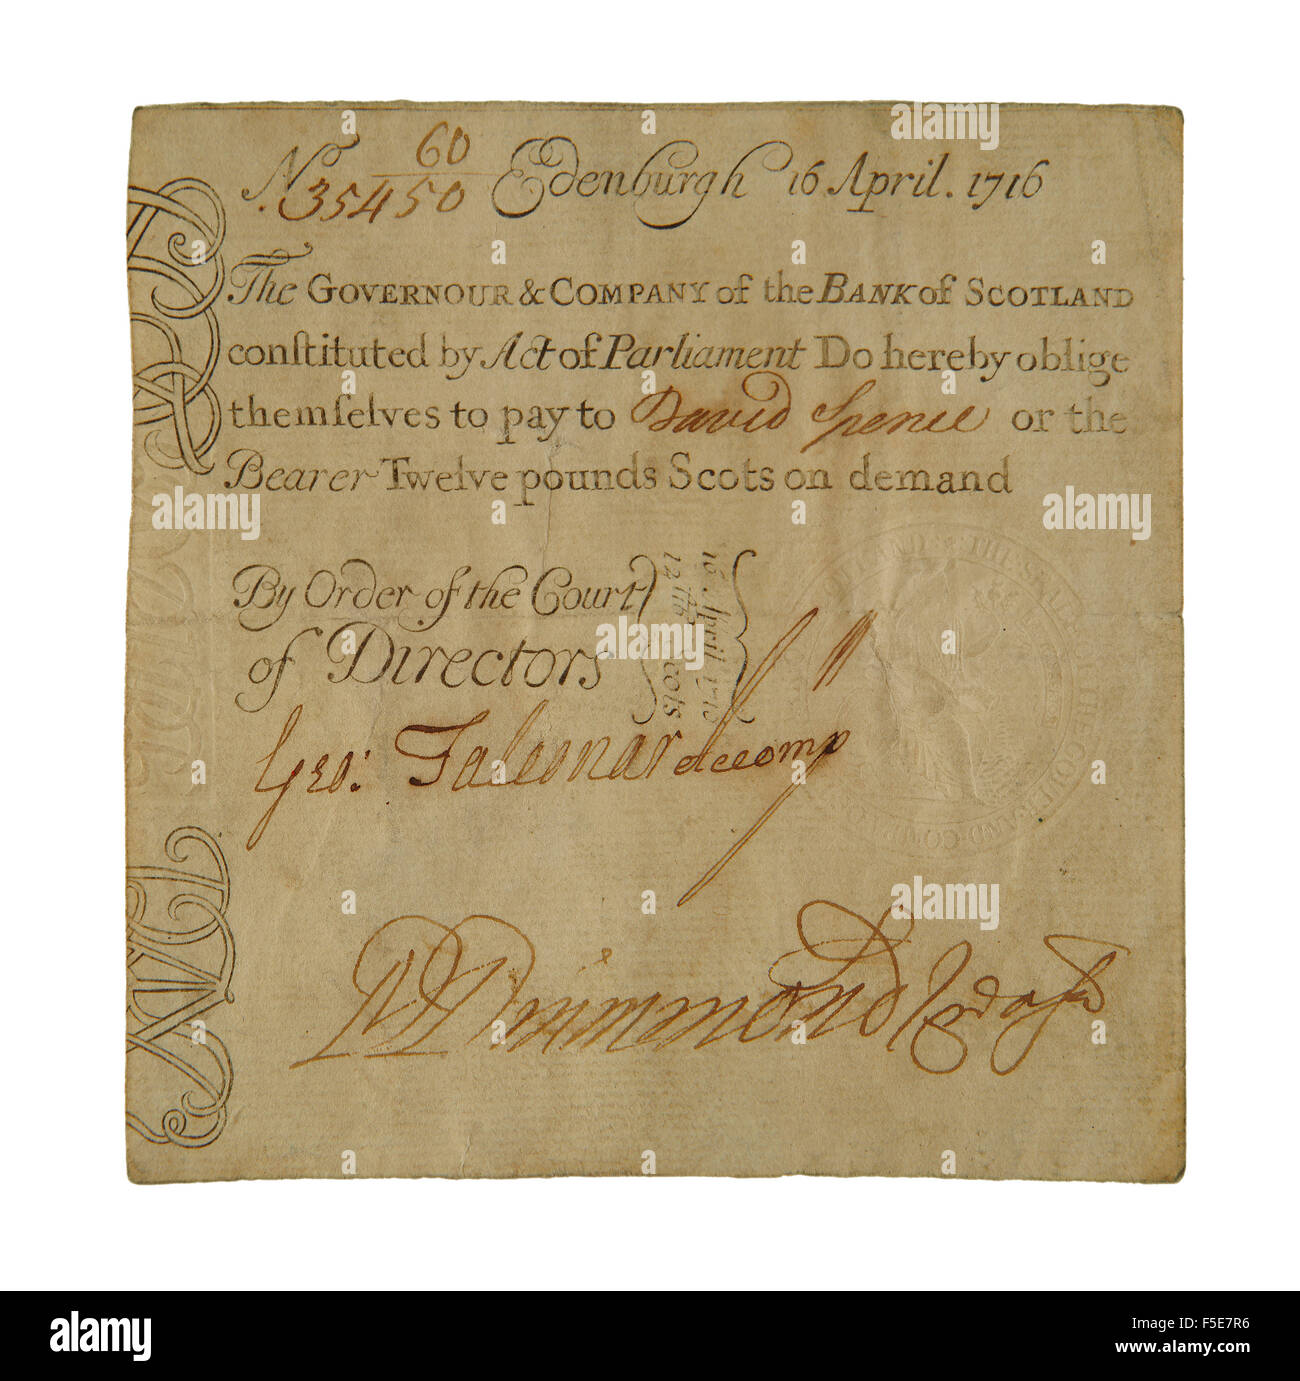 60
No. 35450 Edenburgh 16 April. 1716
The GOVERNOUR & COMPANY of the BANK of SCOTLAND
conſtituted by Act of Parliament Do hereby oblige
themſelves to pay to David Spence or the
Bearer Twelve pounds Scots on demand
By Order of the Court
of Directors
16 April 1716
12 lib Scots
Geo: Falconar Accomp
Drummond
alamy
Image ID: F5E7R6
www.alamy.com